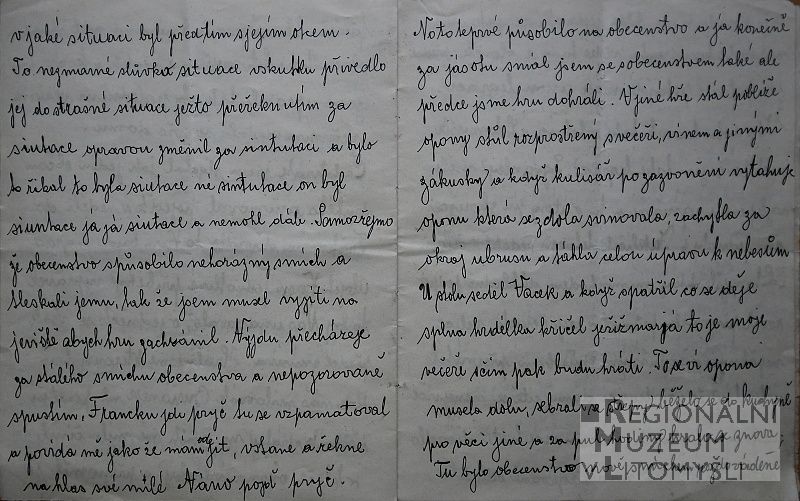 v jaké situaci byl předtím sjejím okem.
To nezmarné slůvko situace vskutku přivedlo
jej do strašné situace ježto přeřeknutím za
siutace opravou změnil za sintutaci a bylo
to říkal to byla siutace né sintutace on byl
siuntace já já siutace a nemohl dál. Samozřejmo
že obecenstvo spůsobilo nehorázný smích a
tleskali jemu, tak že jsem musel vyjíti na
jeviště abych hru zachránil. Vyjdu přecházeje
za stálého smíchu obecenstva a nepozorovaně
spustím, Francku jdu pryč tu se vzpamatoval
a povídá mě jako že mám odjít, vstane a řekne
na hlas své milé Náno pojď pryč.
No to teprvé působilo na obecenstvo a já konečně
za jásotu smál jsem se sobecenstvem také ale
předce jsme hru dohráli. V jiné hře stál poblíže
opony stůl rozprostřený svečeří, vínem a jinými
zákusky a když kulisář po zazvonění vytahuje
oponu která se zdola svinovala, zachytla za
okraj ubrusu a táhla celou úpravu k nebesům
U stolu seděl Vacek a když spatřil co se děje
splna hrdélka křičel ježížmarjá to je moje
večeře sčím pak budu hráti. To se ví opona
musela dolu, sebrali se střepy běželo se do kuchyně
pro věci jiné a za půl hodiny hrálo se znovu.
Tu bylo obecenstvo
REGIONÁLNÍ
MUZEUM V
LITOMYŠLI